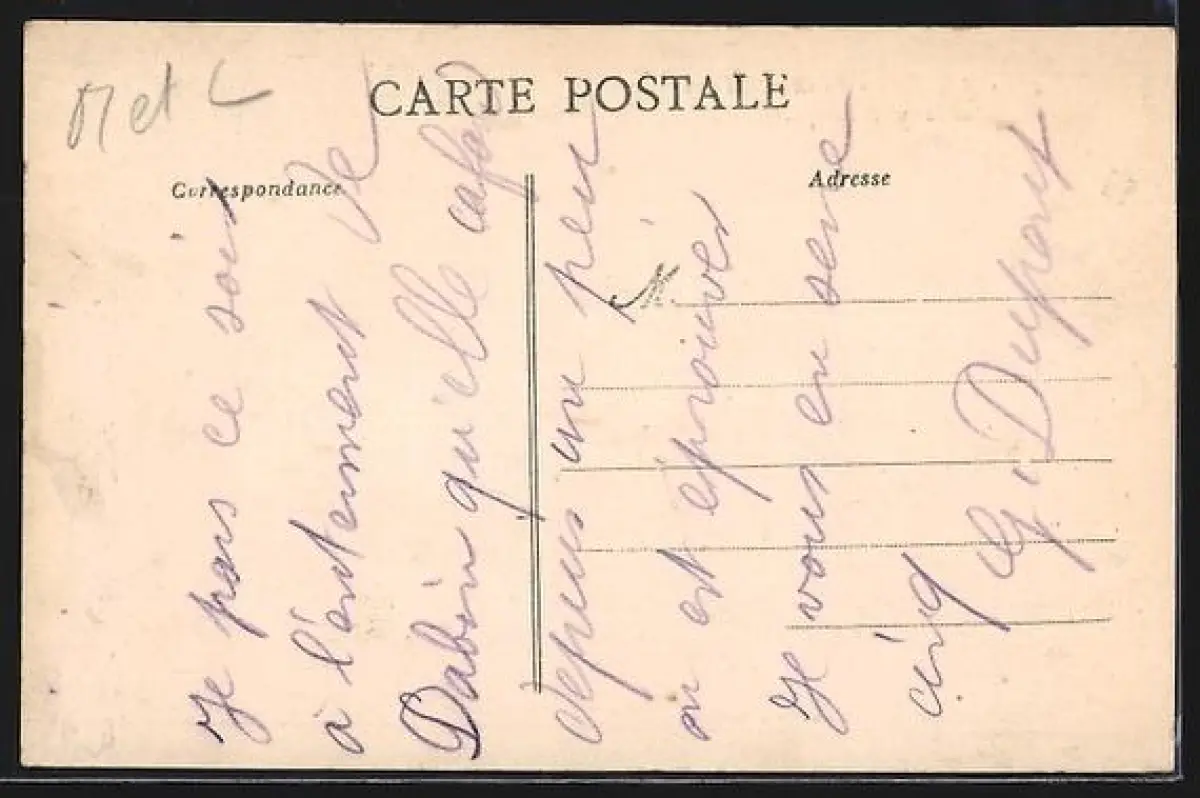 M et L
CARTE POSTALE
Correspondance
Adresse
Je pars ce soir
à l'enterrement de
Dabin qu'elle cafard
depuis un peu
on est eprouver
Je vous en serre
cinq
G. Dupont